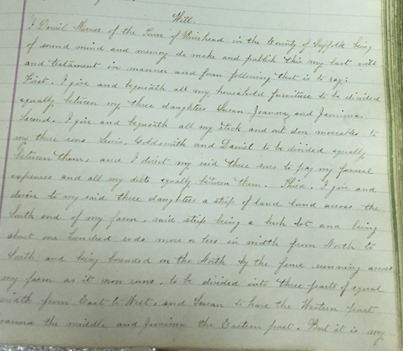 Will.
I Daniel Warner of the Town of Riverhead in the County of Suffolk being
of sound mind and memory do make and publish this my last will
and testament in manner and form following that is to say:
First. I give and bequeath all my household furniture to be divided
equally between my three daughters Susan, Joanna, and Jemima.
Second. I give and bequeath all my stock and out door moveables to
my three sons Lewis, Goldsmith and Daniel to be divided equally
between them, and I direct my said three sons to pay my funeral
expenses and all my debts equally between them. Third. I give and
devise to my said three daughters a strip of land across the
South end of my farm, said strip being a bush lot and being
about one hundred rods more or less in width from North to
South and being bounded on the North by the fence running across
my farm as it now runs, to be divided into three parts of equal
width from East to West, and Susan to have the Western part
Joanna the middle and Jemima the Eastern part. But it is my